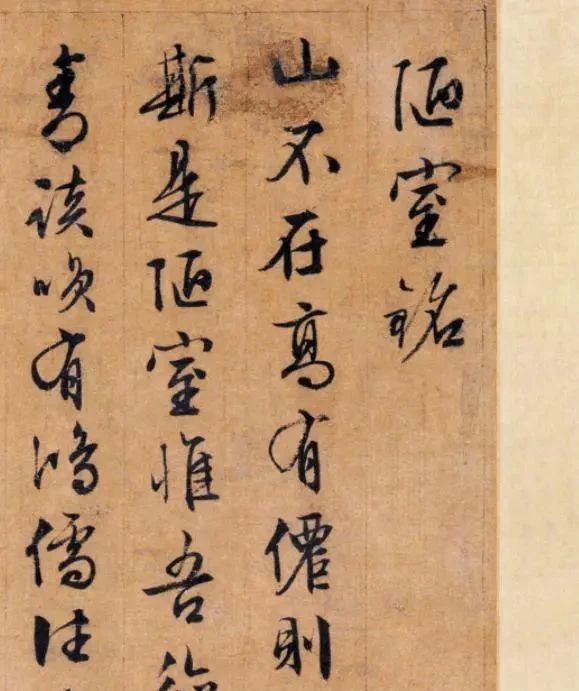 陋室銘
山不在高有僊則
斯是陋室惟吾德
青談唉有鴻儒往